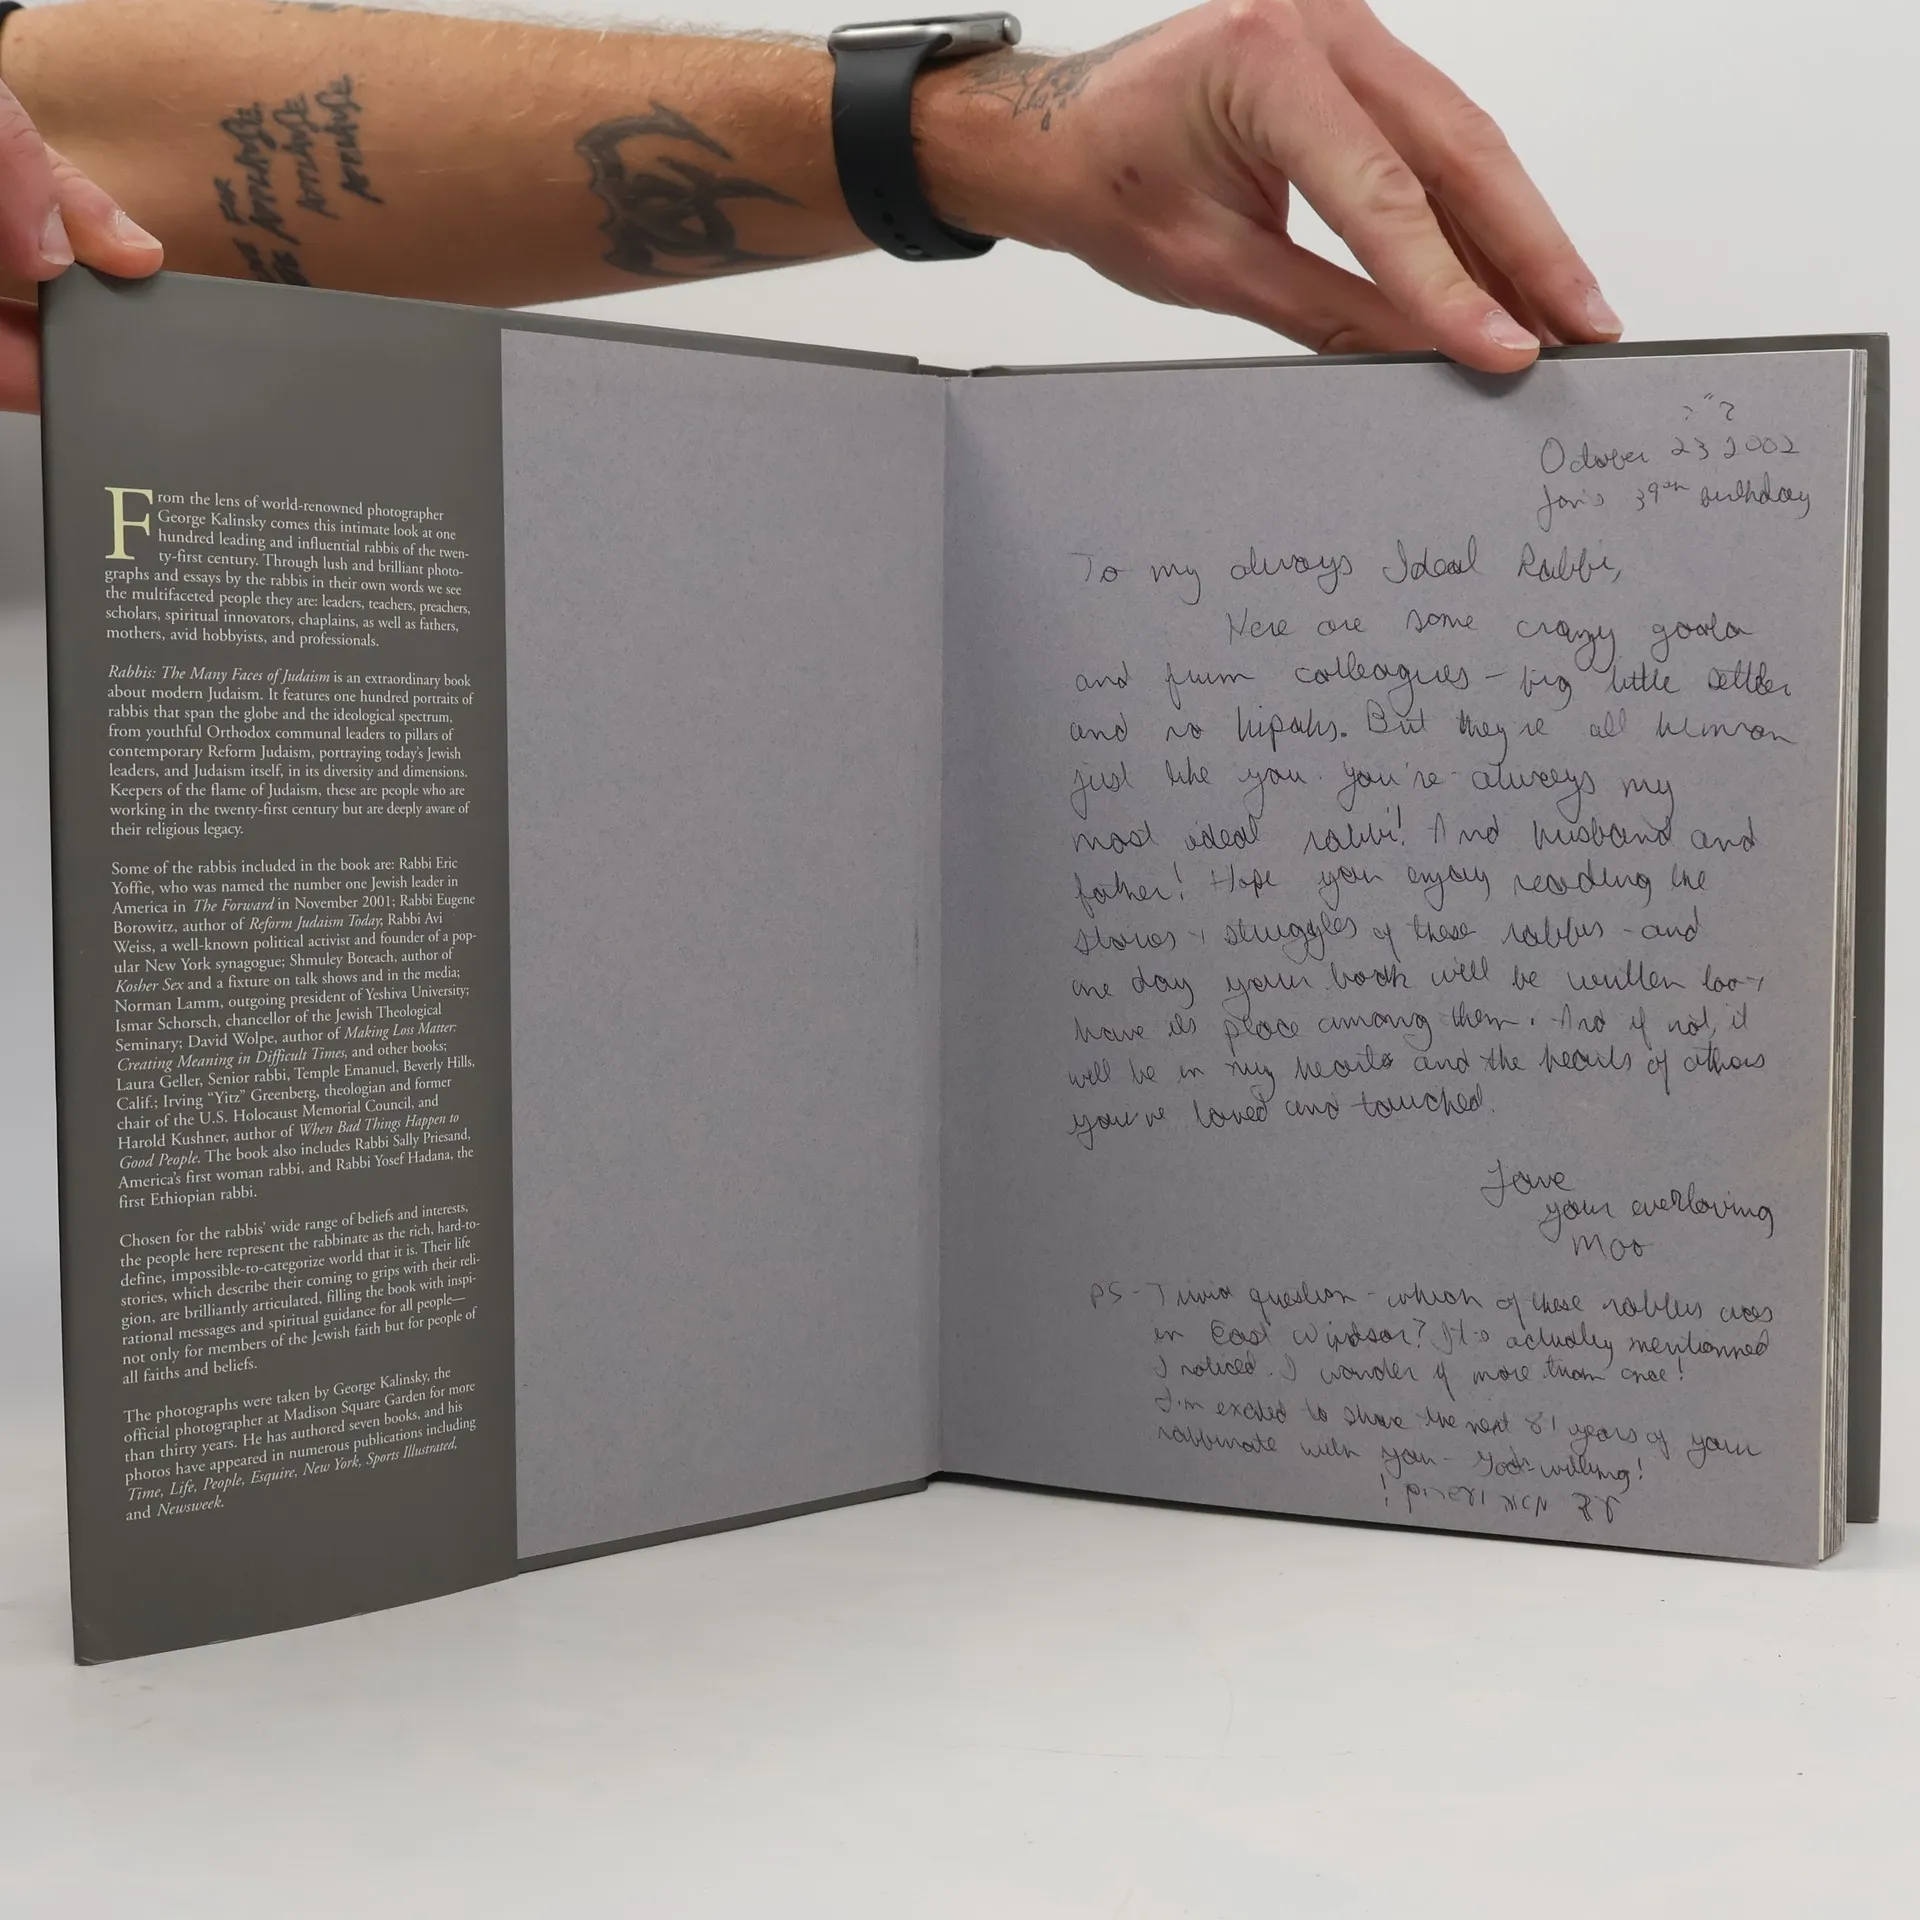 FOR
ATTILASE
ATTILASE
ATTILASE
From the lens of world-renowned photographer
George Kalinsky comes this intimate look at one
hundred leading and influential rabbis of the twen-
ty-first century. Through lush and brilliant photo-
graphs and essays by the rabbis in their own words we see
the multifaceted people they are: leaders, teachers, preachers,
scholars, spiritual innovators, chaplains, as well as fathers,
mothers, avid hobbyists, and professionals.
Rabbis: The Many Faces of Judaism is an extraordinary book
about modern Judaism. It features one hundred portraits of
rabbis that span the globe and the ideological spectrum,
from youthful Orthodox communal leaders to pillars of
contemporary Reform Judaism, portraying today's Jewish
leaders, and Judaism itself, in its diversity and dimensions.
Keepers of the flame of Judaism, these are people who are
working in the twenty-first century but are deeply aware of
their religious legacy.
Some of the rabbis included in the book are: Rabbi Eric
Yoffie, who was named the number one Jewish leader in
America in The Forward in November 2001; Rabbi Eugene
Borowitz, author of Reform Judaism Today; Rabbi Avi
Weiss, a well-known political activist and founder of a pop-
ular New York synagogue; Shmuley Boteach, author of
Kosher Sex and a fixture on talk shows and in the media;
Norman Lamm, outgoing president of Yeshiva University;
Ismar Schorsch, chancellor of the Jewish Theological
Seminary; David Wolpe, author of Making Loss Matter:
Creating Meaning in Difficult Times, and other books;
Laura Geller, Senior rabbi, Temple Emanuel, Beverly Hills,
Calif.; Irving “Yitz” Greenberg, theologian and former
chair of the U.S. Holocaust Memorial Council, and
Harold Kushner, author of When Bad Things Happen to
Good People. The book also includes Rabbi Sally Priesand,
America's first woman rabbi, and Rabbi Yosef Hadana, the
first Ethiopian rabbi.
Chosen for the rabbis' wide range of beliefs and interests,
the people here represent the rabbinate as the rich, hard-to-
define, impossible-to-categorize world that it is. Their life
stories, which describe their coming to grips with their reli-
gion, are brilliantly articulated, filling the book with inspi-
rational messages and spiritual guidance for all people—
not only for members of the Jewish faith but for people of
all faiths and beliefs.
The photographs were taken by George Kalinsky, the
official photographer at Madison Square Garden for more
than thirty years. He has authored seven books, and his
photos have appeared in numerous publications including
Time, Life, People, Esquire, New York, Sports Illustrated,
and Newsweek.
October 23 2002
Jon's 39th birthday
To my always Ideal Rabbi,
Here are some crazy
and frum colleagues - big little
and no kipahs. But they're all human
just like you. You're always my
most ideal rabbi! And husband and
father! Hope you enjoy reading the
stories + struggles of these rabbis - and
one day your book will be written too +
have its place among them. And if not, it
will be in my heart and the hearts of others
you've loved and touched.
Love
your everloving
Moo
PS - Trivia question - which of these rabbis was
in East Windsor? It's actually mentionned
I noticed. I wonder if more than once!
I'm excited to share the next 81 years of your
rabbinate with you - God-willing!